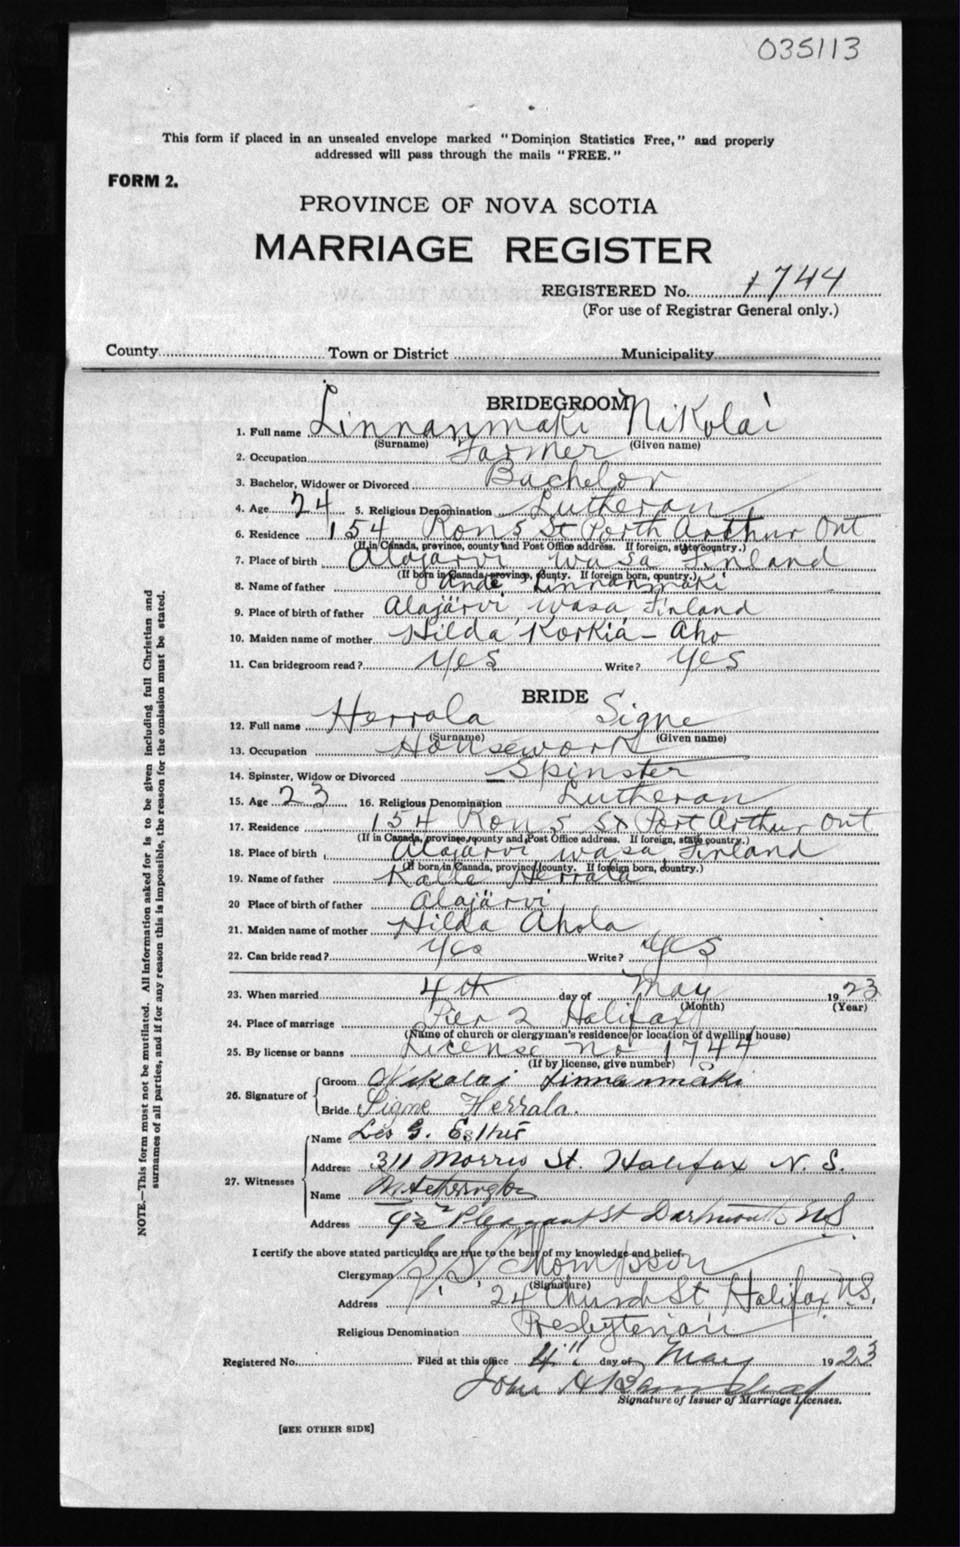 035113
This form if placed in an unsealed envelope marked "Dominion Statistics Free," and properly
addressed will pass through the mails "FREE."
FORM 2.
PROVINCE OF NOVA SCOTIA
MARRIAGE REGISTER
REGISTERED No. 1744
(For use of Registrar General only.)
County Town or District Municipality
BRIDEGROOM
1. Full name Linnanmaki Nikolai
(Surname) (Given name)
2. Occupation Farmer
3. Bachelor, Widower or Divorced Bachelor
4. Age 24 5. Religious Denomination Lutheran
6. Residence 154 Ron 5 St Porth Arthur Ont
(If in Canada, province, county and Post Office address. If foreign, state country.)
7. Place of birth Alajarvi Wasa Finland
(If born in Canada, province, county. If foreign born, country.)
8. Name of father Linnanmaki
9. Place of birth of father Alajärvi, Wasa, Finland
10. Maiden name of mother Hilda Korkia-Aho
11. Can bridegroom read? Yes Write? Yes
BRIDE
12. Full name Herrala Signe
(Surname) (Given name)
13. Occupation Housework
14. Spinster, Widow or Divorced Spinster
15. Age 23 16. Religious Denomination Lutheran
17. Residence 154 Ron 5 St Port Arthur Ont
(If in Canada, province, county and Post Office address. If foreign, state country.)
18. Place of birth Alajarvi Wasa Finland
(If born in Canada, province, county. If foreign born, country.)
19. Name of father Kalle Herrala
20 Place of birth of father Alajärvi
21. Maiden name of mother Hilda Ahola
22. Can bride read? Yes Write? Yes
23. When married 4th day of May 1923
(Month) (Year)
24. Place of marriage Pier 2 Halifax
(Name of church or clergyman's residence or location of dwelling house)
25. By license or banns License no 1744
(If by license, give number)
26. Signature of
Groom Nikolai Linnanmäki
Bride Signe Herrala.
27. Witnesses
Name Les G.
Address 311 Morris St. Halifax N. S.
Name
Address Pleasant St Dartmouth N.S.
I certify the above stated particulars are true to the best of my knowledge and belief.
Clergyman Thompson
(Signature)
Address 24 Church St Halifax N.S.
Religious Denomination Presbyterian
Registered No. Filed at this office 4" day of May 1923
John
Signature of Issuer of Marriage Licenses.
[SEE OTHER SIDE]
NOTE.—This form must not be mutilated. All Information asked for is to be given including full Christian and
surnames of all parties, and if for any reason this is impossible, the reason for the omission must be stated.